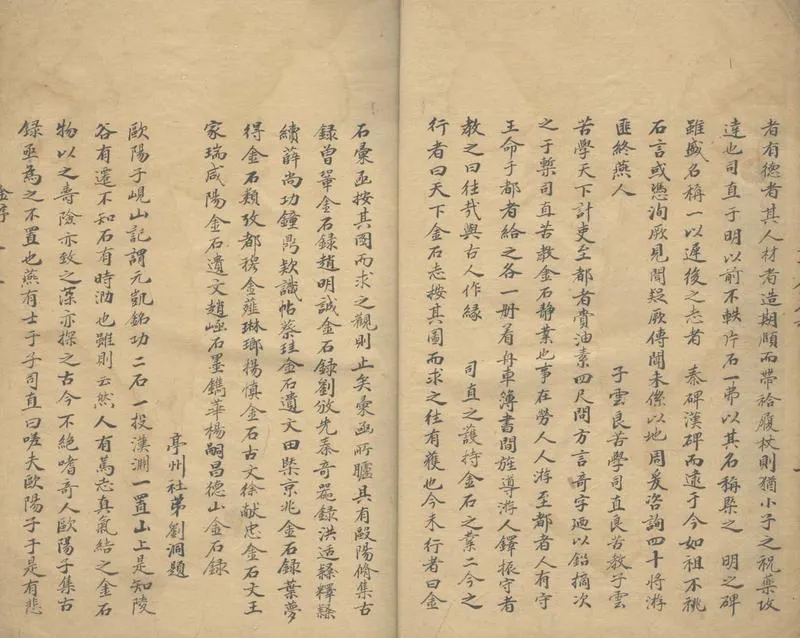 者有德者其人材者造期頤而帶袷履杖則猶小子之祝藥攻
達也司直于明以前不軼片石一弗以其名稱槩之 明之碑
雖盛名稱一以遲後之志者 秦碑漢碑而逺于今如祖不祧
石言或憑洵厥見聞疑厥傳聞未傺以地周爰咨詢四十將游
匪終燕人 子雲良苦學司直良苦教子雲
苦學天下計吏至都者賫油素四尺問方言奇字廼以鉛摘次
之于槧司直苦教金石静業也事在勞人人游至都者人有守
王命于都者給之各一册着舟車簿書間旌導游人鐸振守者
教之曰往哉與古人作縁 司直之護持金石之業二今之
行者曰天下金石志按其圖而求之往有獲也今未行者曰金
石彚函按其圖而求之觀則止矣彚函所臚其有歐陽脩集古
錄曾鞏金石錄趙明誠金石錄劉攽先秦竒噐錄洪适隸釋隸
續薛尚功鐘鼎欵識帖蔡珪金石遺文田槩京兆金石錄葉夢
得金石類攷都穆金薤琳瑯楊慎金石古文徐献忠金石文王
家瑞咸陽金石遺文趙崡石墨鐫華楊嗣昌德山金石錄
亭州社弟劉洞題
歐陽子峴山記謂元凱銘功二石一投漢淵一置山上是知陵
谷有遷不知石有時泐也雖則云然人有篤志真氣結之金石
物以之壽險亦致之深亦探之古今不絶嗜奇人歐陽子集古
錄亟為之不置也燕有士于子司直曰嗟夫歐陽子于是有悲
金序